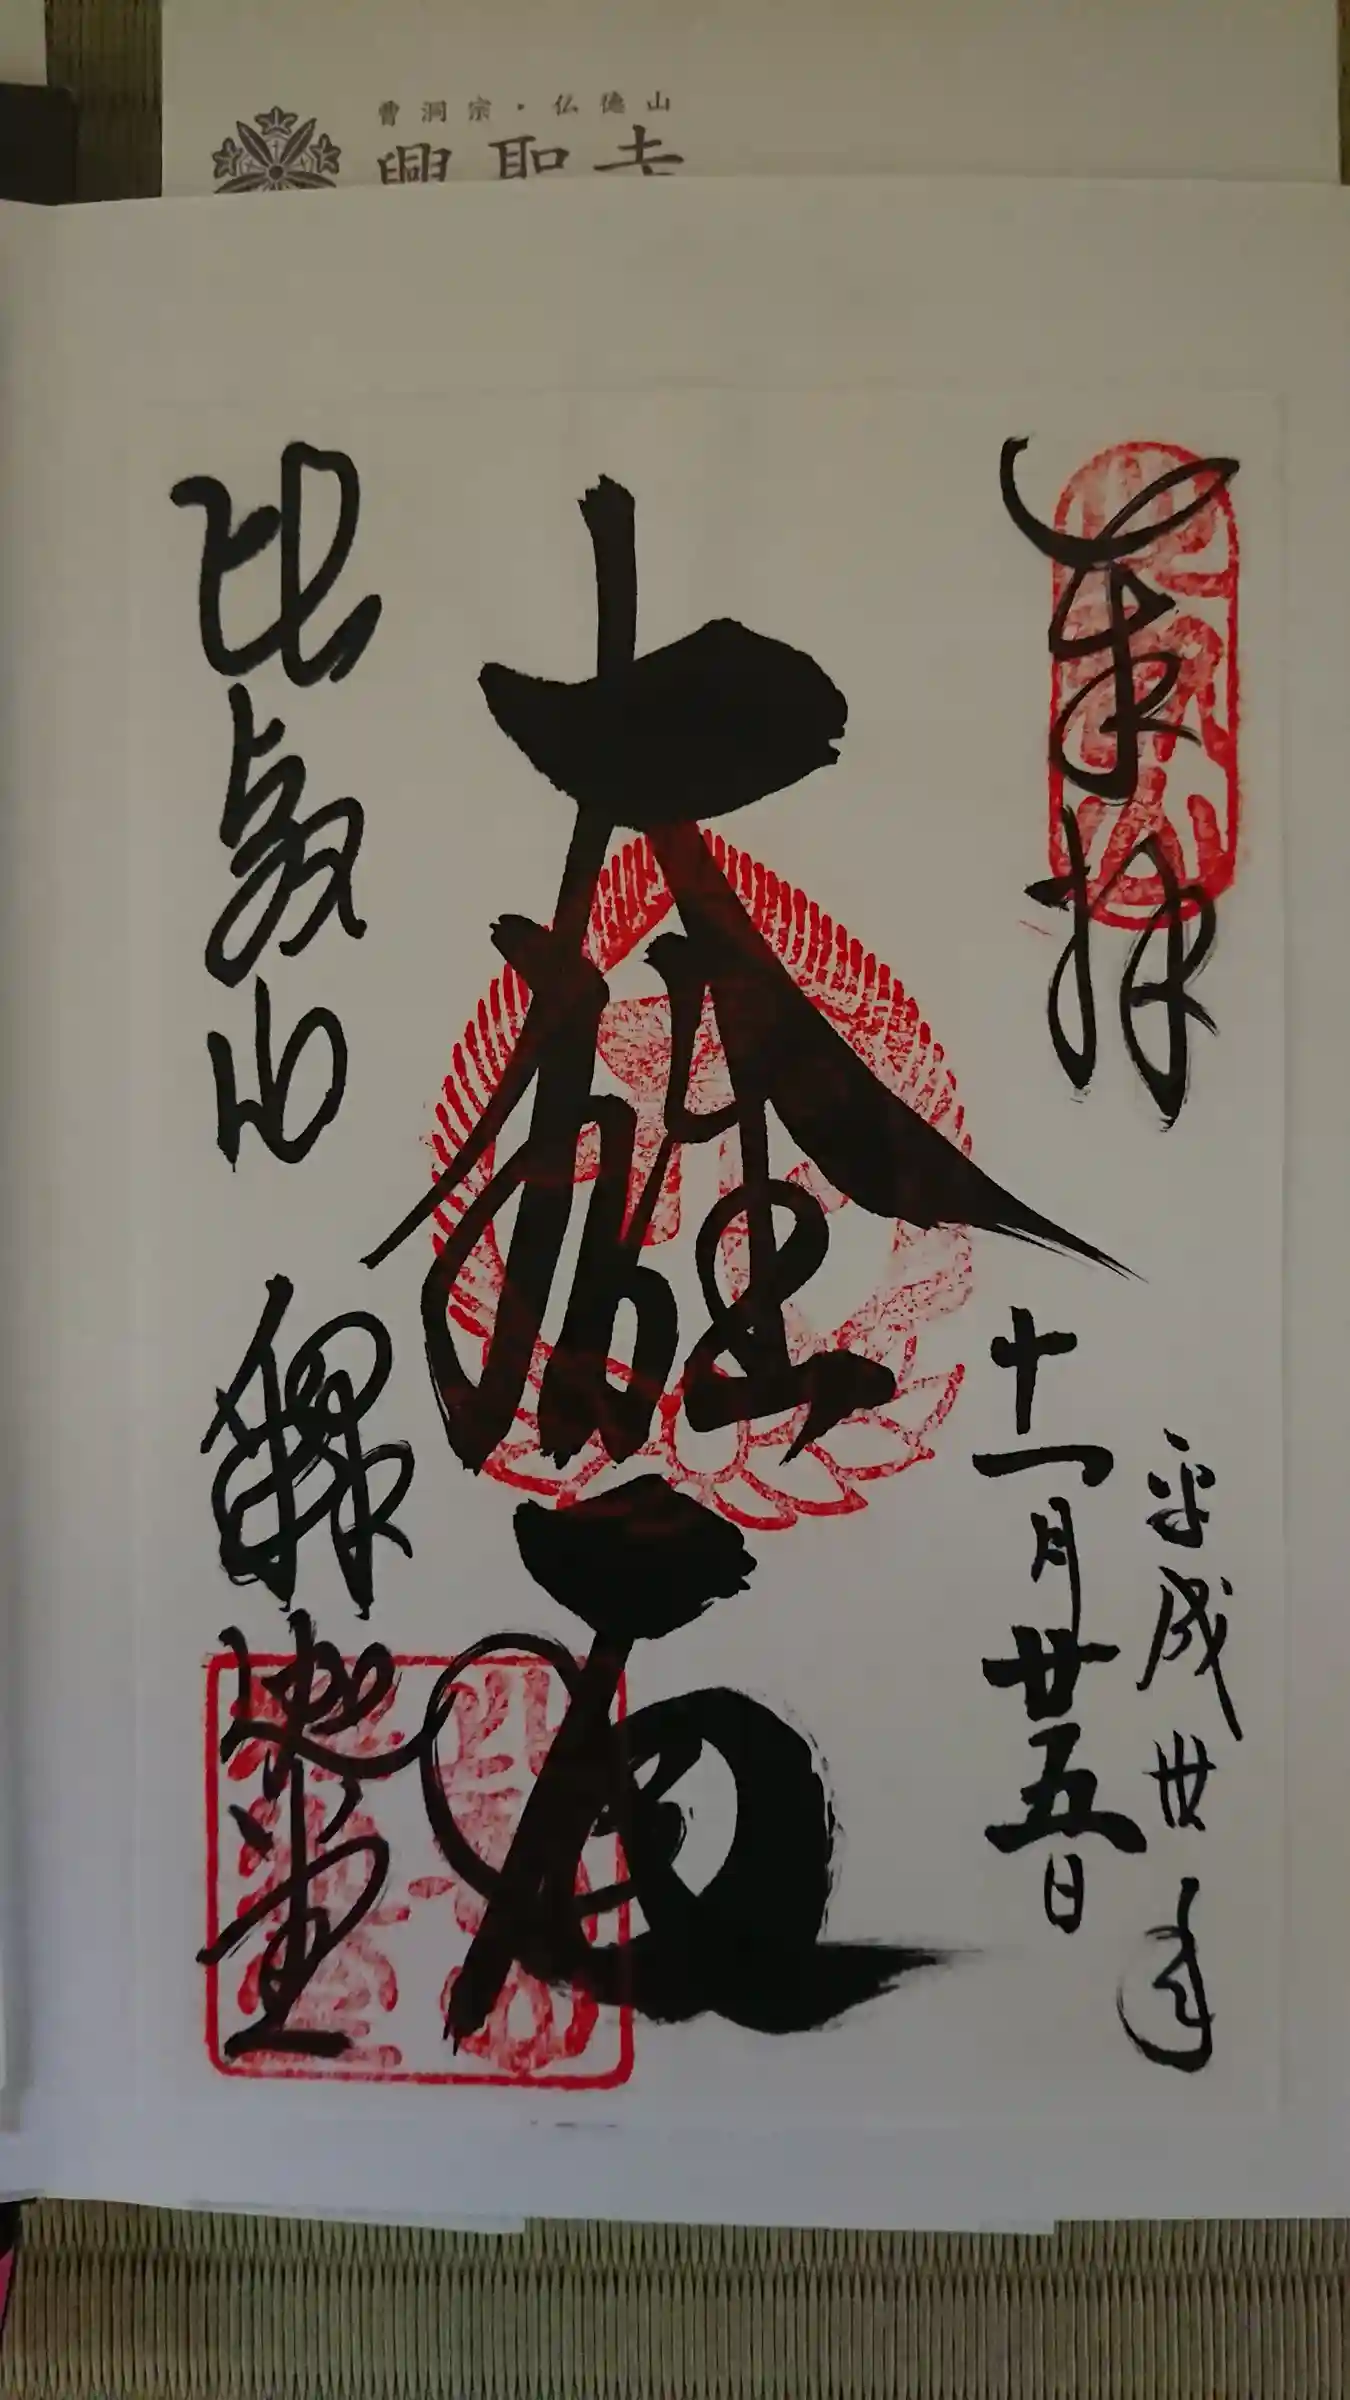 曹洞宗・仏徳山
興聖寺
奉拝
平成丗年
十一月廿五日
大雄
比叡山 釋迦堂